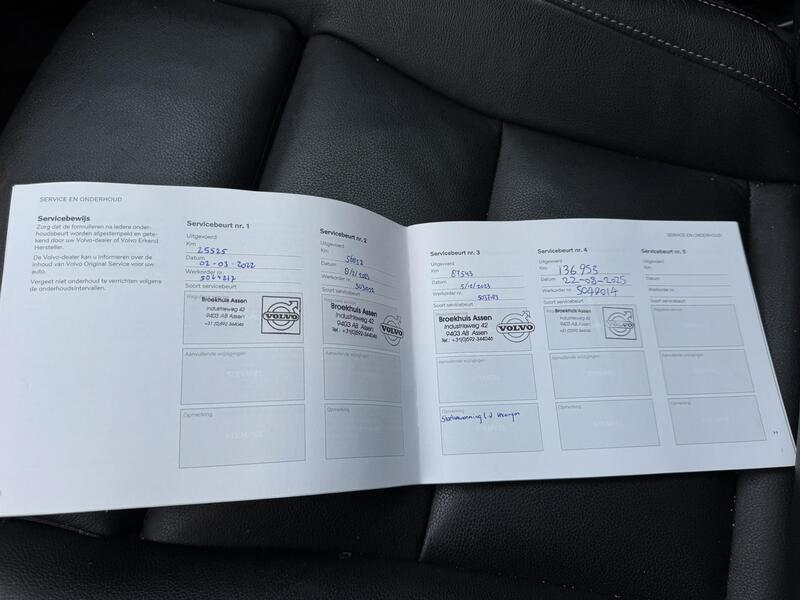 SERVICE EN ONDERHOUD
Servicebewijs
Zorg dat de formulieren na iedere onder-
houdsbeurt worden afgestempeld en gete-
kend door uw Volvo-dealer of Volvo Erkend
Hersteller.
De Volvo-dealer kan u informeren over de
inhoud van Volvo Original Service voor uw
auto.
Vergeet niet onderhoud te verrichten volgens
de onderhoudsintervallen.
Servicebeurt nr. 1
Uitgevoerd
Km 25525
Datum 02-03-2022
Werkorder nr. 5024217
Soort servicebeurt
Broekhuis Assen
Industrieweg 42
9403 AB Assen
+31 (0)592-344046
VOLVO
Aanvullende wijzigingen
STEMPEL
Opmerking
STEMPEL
Servicebeurt nr. 2
Uitgevoerd
Km 56812
Datum 8/2/2023
Werkorder nr.
Soort servicebeurt
Broekhuis Assen
Industrieweg 42
9403 AB Assen
Tel.: +31(0)592-344046
VOLVO
Aanvullende wijzigingen
Opmerking
SERVICE EN ONDERHOUD
Servicebeurt nr. 3
Uitgevoerd
Km 87543
Datum 5/12/2023
Werkorder nr.
Soort servicebeurt
Broekhuis Assen
Industrieweg 42
9403 AB Assen
Tel.: +31(0)592-344046
VOLVO
Aanvullende wijzigingen
Opmerking
Servicebeurt nr. 4
Uitgevoerd
Km 136953
Datum 22-08-2025
Werkorder nr. 5049014
Soort servicebeurt
Broekhuis Assen
Industrieweg 42
9403 AB Assen
+31 (0)592-344046
VOLVO
Aanvullende wijzigingen
Opmerking
Servicebeurt nr. 5
Uitgevoerd
Km
Datum
Werkorder nr.
Soort servicebeurt
Aanvullende wijzigingen
Opmerking